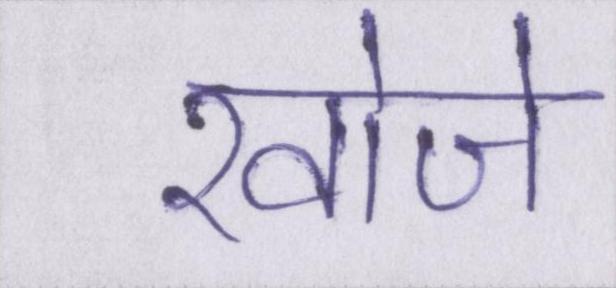 खोजे